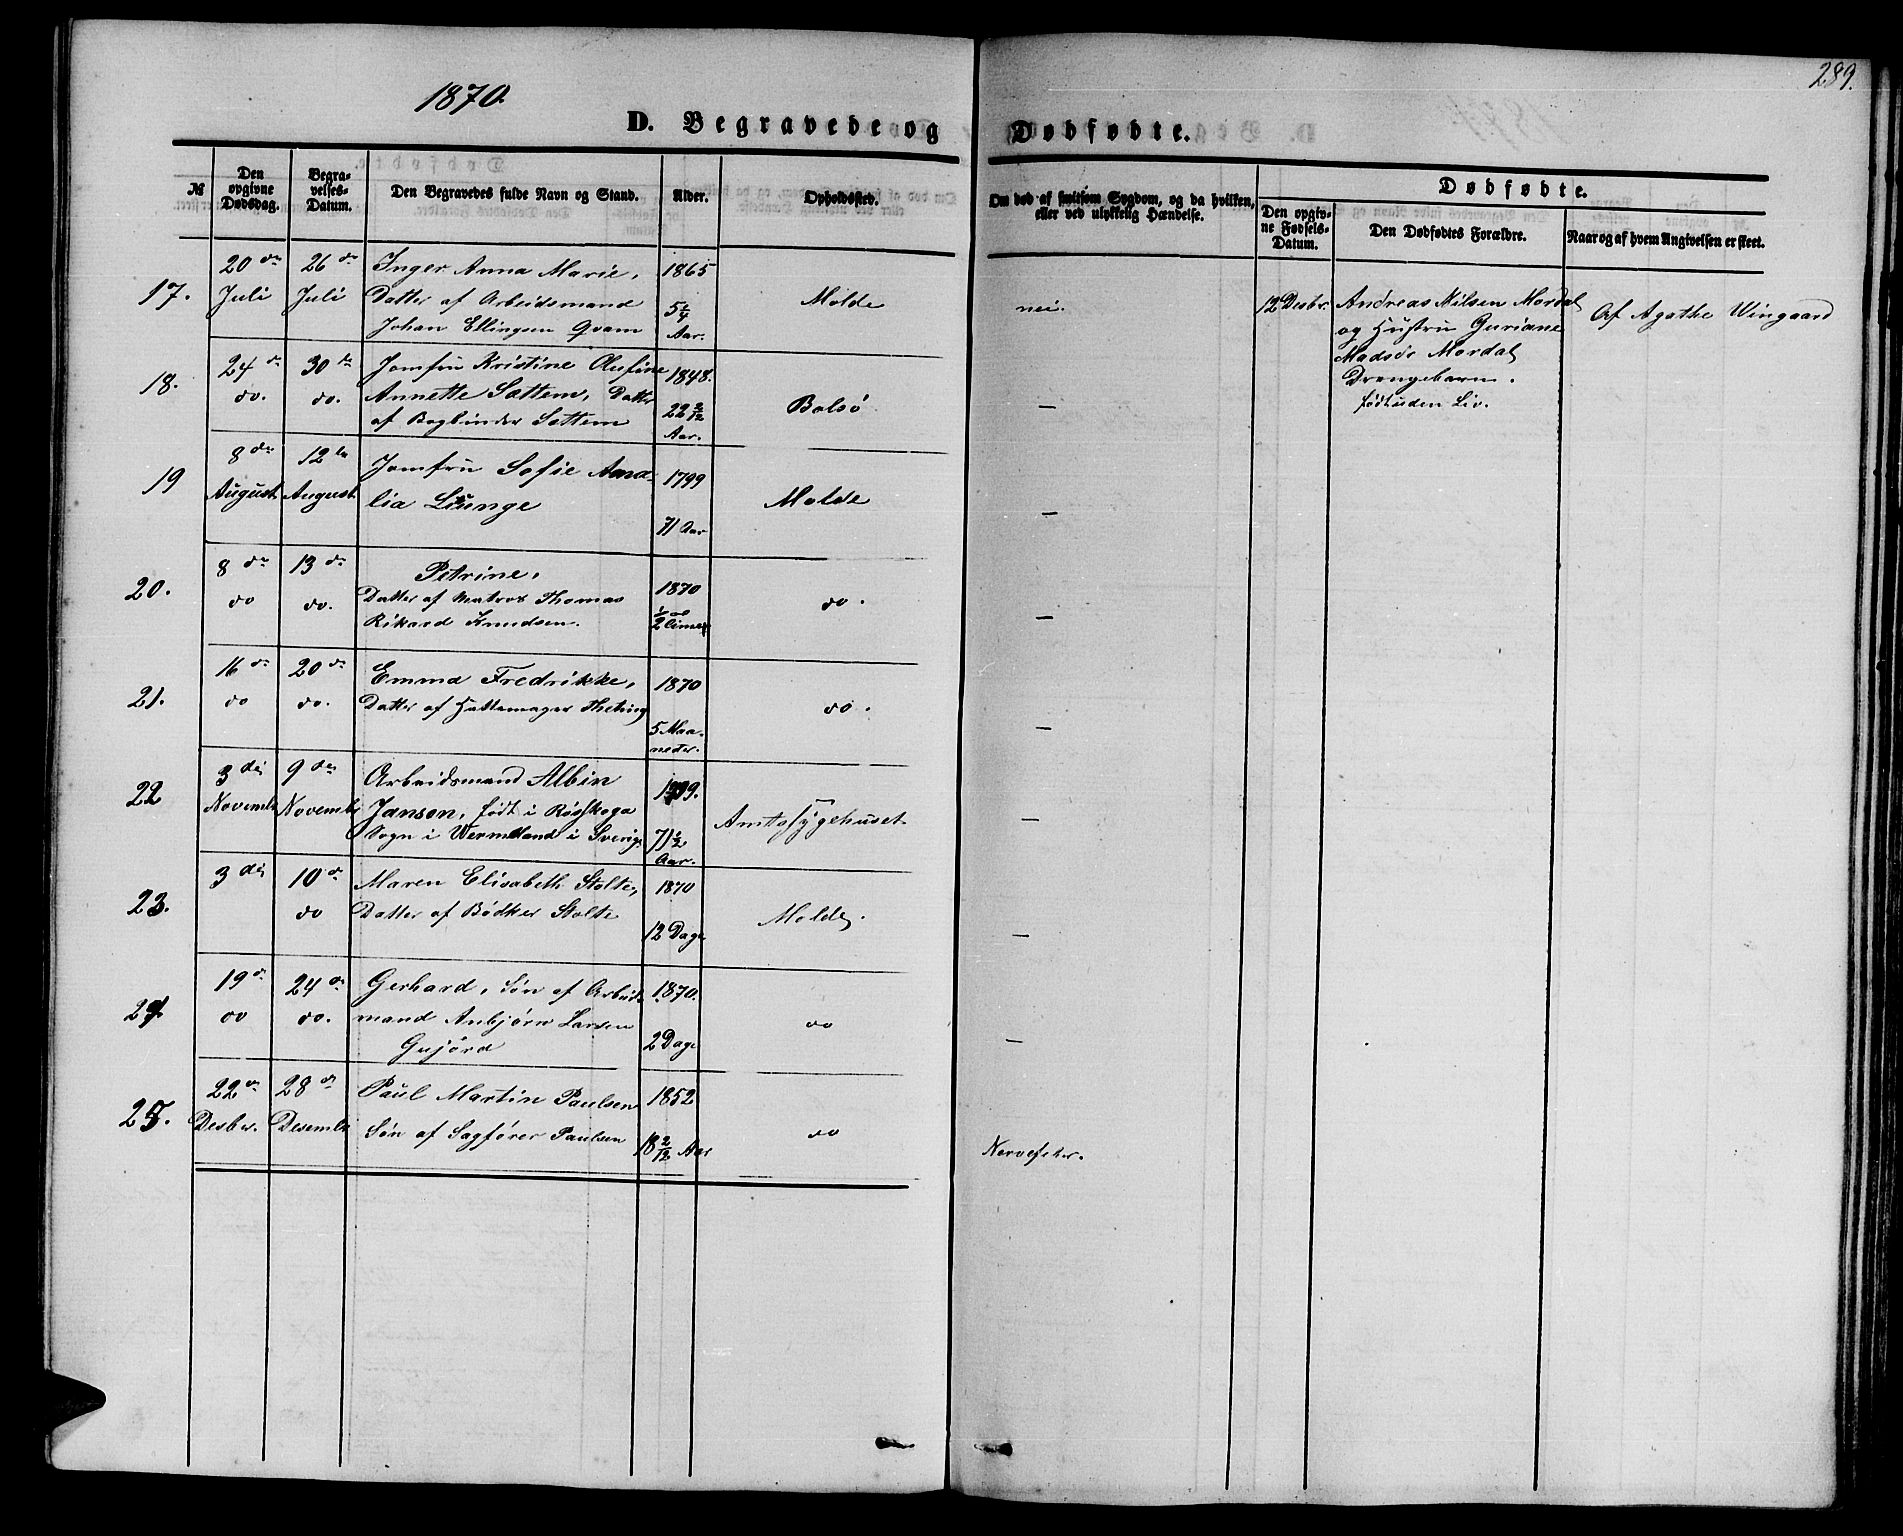 1870.
289.
D. Begravede og Dødfødte.
№
Den opgivne Dødsdag.
Begravelses-Datum.
Den Begravedes fulde Navn og Stand.
Alder.
Opholdssted.
Om død af smitsom Sygdom, og da hvilken, eller ved ulykkelig Hændelse.
Dødfødte.
Den opgivne Fødsels-Datum.
Den Dødfødtes Forældre.
Naar og af hvem Angivelsen er skeet.
17.
20 de
Juli
26 de
Juli
Inger Anna Marie,
Datter af Arbeidsmand
Johan Ellingsen Qvam
1865
5 1/4
Aar.
Molde
nei.
12 Desbr.
Andreas Nilsen Mordal
og Hustru Guriane
Madsdr Mordal
Drengebarn.
født uden Liv.
Af Agathe Wingaard
18.
24 de
do.
30 te
do.
Jomfru Kristine Olufine
Annette Sættem, Datter
af Bogbinder Sættem
1848.
22 2/12
Aar.
Bolsø
—
19
8 de
August
12 te
August
Jomfru Sofie Ama-
lia Liunge
1799
71 Aar
Molde
—
20.
8 de
do
13 de
do.
Petrine,
Datter af Matros Thomas
Rikard Knudsen.
1870
do.
—
21.
16 de
do
20 de
do.
Emma Fredrikke,
Datter af Hattemager Thetring
1870
5 Maa-
neder.
do.
—
22
3 die
Novembr
9 de
Novembr
Arbeidsmand Albin
Janson, født i
Sogn i Wermeland i Sverig.
1799.
71 1/2
Aar.
Amtssygehuset.
—
23.
3 die
10 de
do
Maren Elisabeth Stolte,
Datter af Bødker Stolte
1870
12 Dage
Molde.
—
24.
19 de
do
24 de
do.
Gerhard, Søn af Arbeids-
mand Anbjørn Larsen
Gujørd
1870.
2 Dage
do
—
25.
22 de
Desber.
28 de
Desembr
Paul Martin Paulsen
Søn af Sagfører Paulsen
1852
18 2/12 Aar
do
Nervefeber.